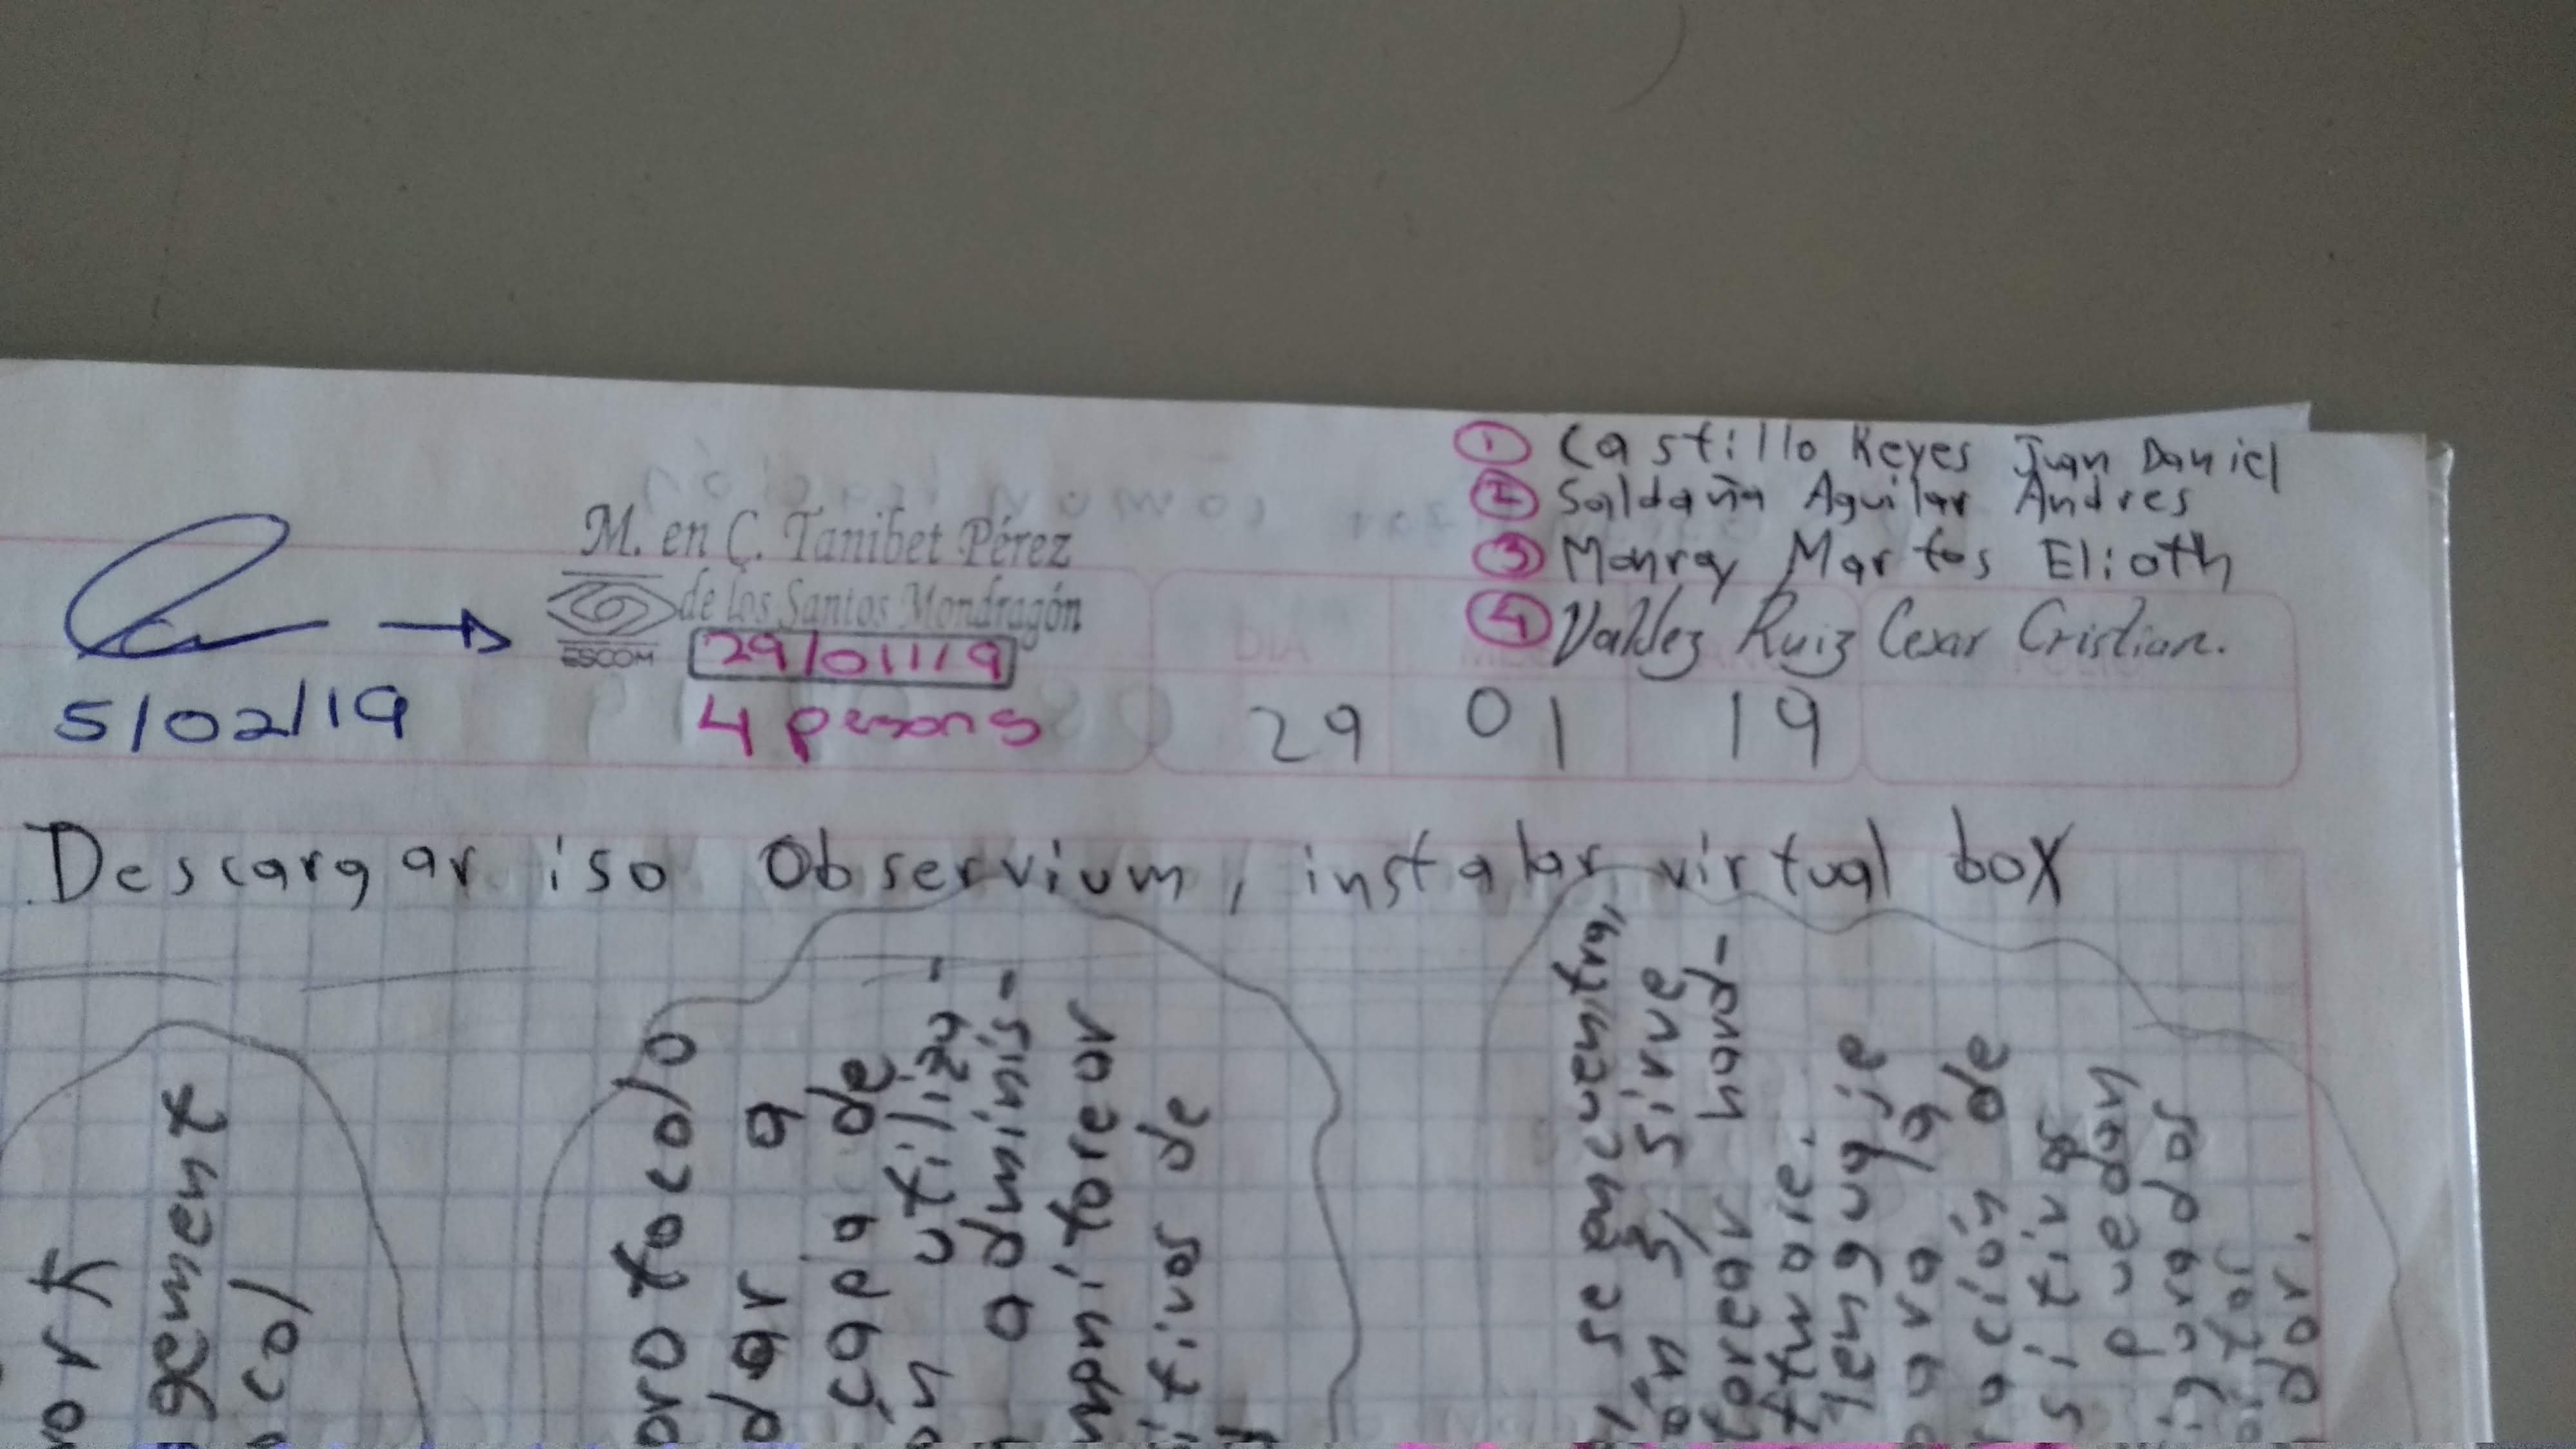 ① Castillo Reyes Juan Daniel
② Saldaña Aguilar Andres
③ Monroy Martos Elioth
④ Valdez Ruiz Cesar Cristian.
M. en C. Tanibet Pérez
de los Santos Mondragón
ESCOM
29/01/19
4 persons
5/02/19
DIA
29 01 19
Descargar iso Observium, instalar virtual box
gement
col
protocolo
dar a
capa de
utiliza-
adminis-
monitorear
itivos de
se encuentra,
ón y sirve
torear hard-
tware.
lenguaje
para la
ración de
sitivos
puedan